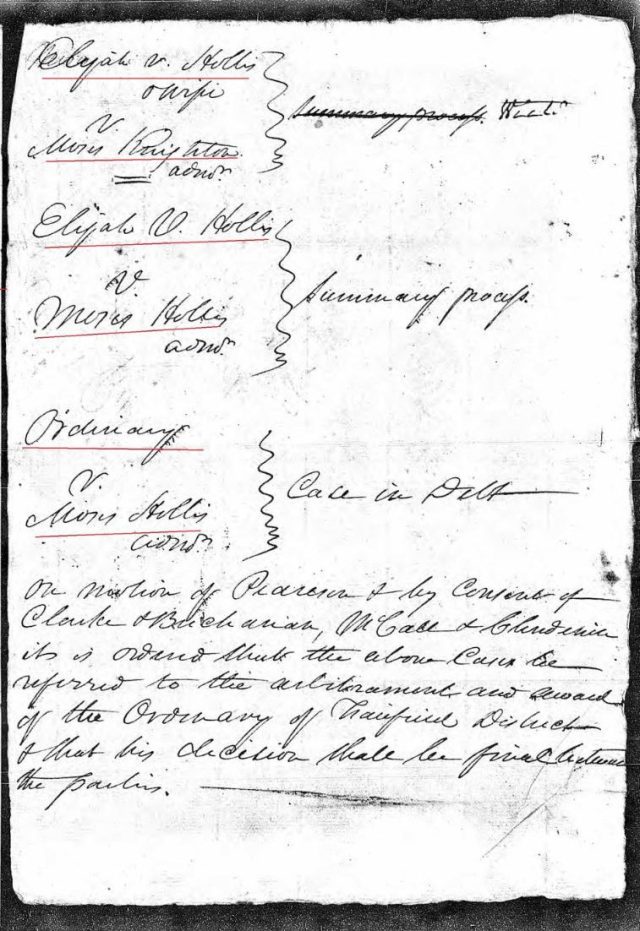 Elijah v. Hollis
& wife
V.
Moses Knighton
admor.
Summary process.
Elijah V. Hollis
V
Moses Hollis
admor.
Summary process.
Ordinary
V.
Moses Hollis
admor.
Case in Debt
On motion of Pearson & by consent of
Clarke & Buchanan, McCall & Clendinin
it is ordered that the above cases be
referred to the arbitrament and award
of the Ordinary of Fairfield District
& that his decision shall be final between
the parties.